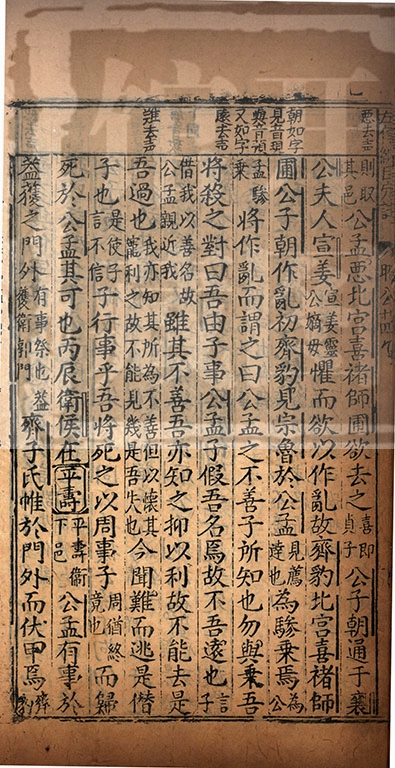 惡去聲
朝如字
見音現
又如字
遠去聲
難去聲
則取其邑公孟惡北宮喜褚師圃欲去之喜即貞子公子朝通于襄
公夫人宣姜宣姜靈公嫡母懼而欲以作亂故齊豹北宮喜褚師
圃公子朝作亂初齊豹見宗魯於公孟見薦達也為驂乘焉為公
孟驂乘將作亂而謂之曰公孟之不善子所知也勿與乘吾
將殺之對曰吾由子事公孟子假吾名焉故不吾遠也言子
借我以善名故公孟親近我雖其不善吾亦知之抑以利故不能去是
吾過也我亦知其所為不善但以懷其寵利之故不能見幾是吾失也今聞難而逃是僭
子也是使子言不信子行事乎吾將死之以周事子周猶終竟也而歸
死於公孟其可也丙辰衛侯在平壽平壽衛下邑公孟有事於
蓋獲之門外有事祭也蓋獲衛郭門齊子氏帷於門外而伏甲焉齊豹